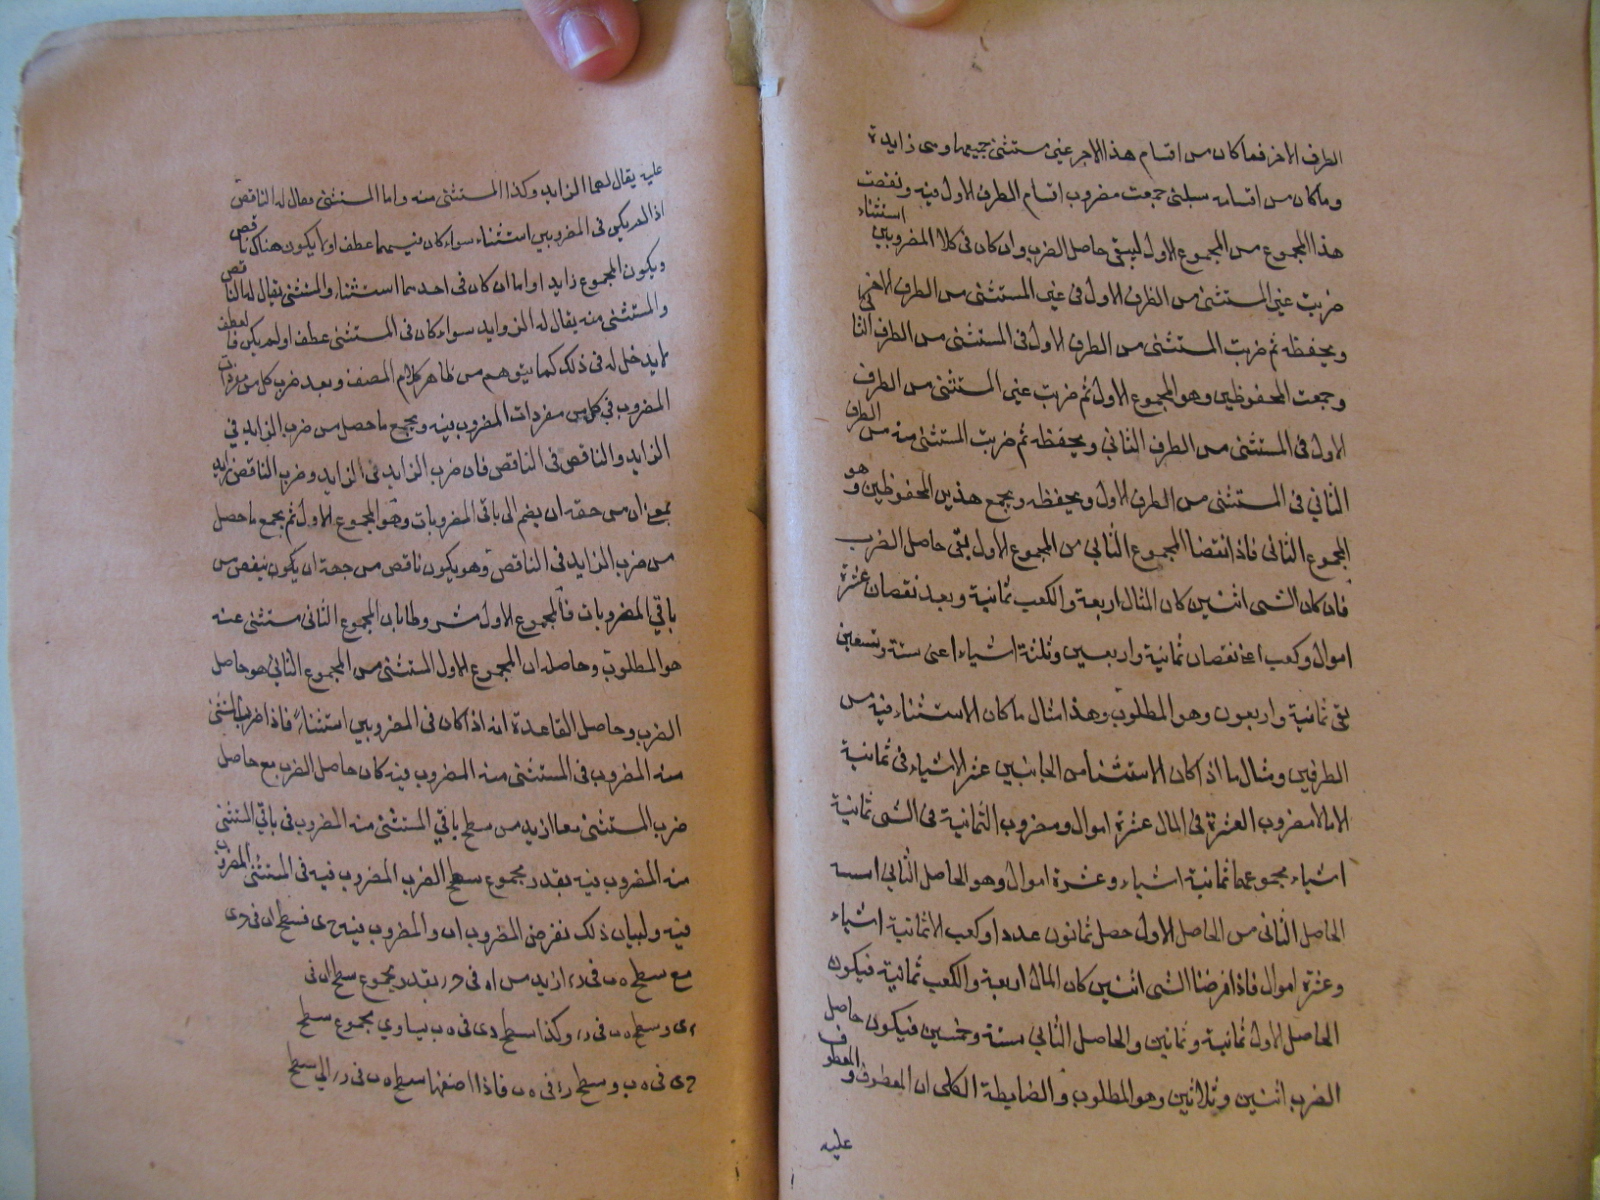 الطرف الاخر فما كان من اقسام هذا الاخر غير مستثنى جميعها وهى زايدة
وما كان من اقسامه سلبتى جمعت مضروب اقسام الطرف الاول فيه ونقصت
هذا المجموع من المجموع الاول ليبقى حاصل الضرب وان كان فى كلا المضروبين استثناء
ضربت غير المستثنى من الطرف الاول فى غير المستثنى من الطرف الاخر
ويحفظه ثم ضربت المستثنى من الطرف الاول فى المستثنى من الطرف الثا
وجمعت المحفوظين وهو المجموع الاول ثم ضربت غير المستثنى من الطرف
الاول فى المستثنى من الطرف الثانى ويحفظه ثم ضربت المستثنى منه من الطرف
الثانى فى المستثنى من الطرف الاول ويحفظه ويجمع هذين المحفوظين وهو
المجموع الثانى فاذا نقصنا المجموع الثانى من المجموع الاول بقى حاصل الضرب
فان كان الشى اثنين كان المثال اربعة والكعب ثمانية وبعد نقصان عشرة
اموال وكعب اعنى نقصان ثمانية واربعين وثلثة اشياء اعنى ستة وتسعين
بقى ثمانية واربعون وهو المطلوب وهذا مثال ما كان الاستثناء فيه من
الطرفين ومثال ما اذا كان الاستثنا من الجانبين عشر الاشياء فى ثمانية
الامالا مضروب العشرة فى المال عشرة اموال ومضروب الثمانية فى الشى ثمانية
اشياء مجموعها ثمانية اشياء وعشرة اموال وهو الحاصل الثانى
الحاصل الثانى من الحاصل الاول حصل ثمانون عددا وكعب الا ثمانية اشياء
وعشرة اموال فاذا فرضنا الشى اثنين كان المال اربعة والكعب ثمانية فيكون
الحاصل الاول ثمانية وثمانين والحاصل الثانى ستة وخمسين فيكون حاصل
الضرب اثنين وثلاثين وهو المطلوب والضابطة الكلى ان المعطوف والمعطوف
عليه
عليه يقال لهما الزايد وكذا المستثنى منه واما المستثنى فقال له الناقص
اذا لم يكن فى المضروبين استثناء سواء كان فيهما عطف اولا يكون هناك ناقص
ويكون المجموع زايدا واما ان كان فى احدهما استثناء والمستثنى يقال له الناقص
والمستثنى منه يقال له الزوايد سواء كان فى المستثنى عطف اولم يكن فالعطف
لا يدخل له فى ذلك كما يتوهم من ظاهر كلام المصنف وبعد ضرب كل من مفردات
المضروب فى كل من مفردات المضروب فيه ويجمع ما حصل من ضرب الزايد فى
الزايد والناقص فى الناقص فان ضرب الزايد فى الزايد وضرب الناقص زايد
بمعنى ان من حقه ان يضم الى باقى المضروبات وهو المجموع الاول ثم يجمع ما حصل
من ضرب الزايد فى الناقص وهو يكون ناقص من جهة ان يكون ينقص من
باقى المضروبات فالمجموع الاول مشروطا بان المجموع الثانى مستثنى عنه
هو المطلوب وحاصله ان المجموع الاول المستثنى من المجموع الثانى هو حاصل
الضرب وحاصل القاعدة انه اذا كان فى المضروبين استثناء فاذا ضرب المستثنى
منه المضروب فى المستثنى منه المضروب فيه كان حاصل الضرب مع حاصل
ضرب المستثنى معا ازيد من سطح باقى المستثنى منه المضروب فى باقى المستثنى
منه المضروب فيه بقدر مجموع سطح الضرب المضروب فيه فى المستثنى المضروب
فيه ولبيان ذلك نفرض المضروب اب والمضروب فيه حى فسطح اب فى دى
مع سطح ه ب فى دى ازيد من اه فى حر بقدر مجموع سطح اب فى
رى وسطح ه ب فى در وكذا سطح دى فى ه ب يساوى مجموع سطح
حى فى ه ب وسطح در فى ه ب فاذا اضفنا سطح ه ب فى در الى سطح